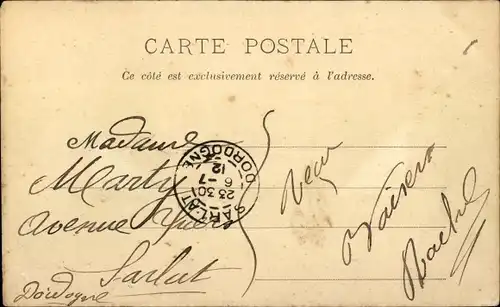 CARTE POSTALE
Ce côté est exclusivement réservé à l'adresse.
Madame
Marty
Avenue Thiers
Sarlat
Dordogne
SARLAT
DORDOGNE
23 30
6 -7
12
Baisers
Rachel